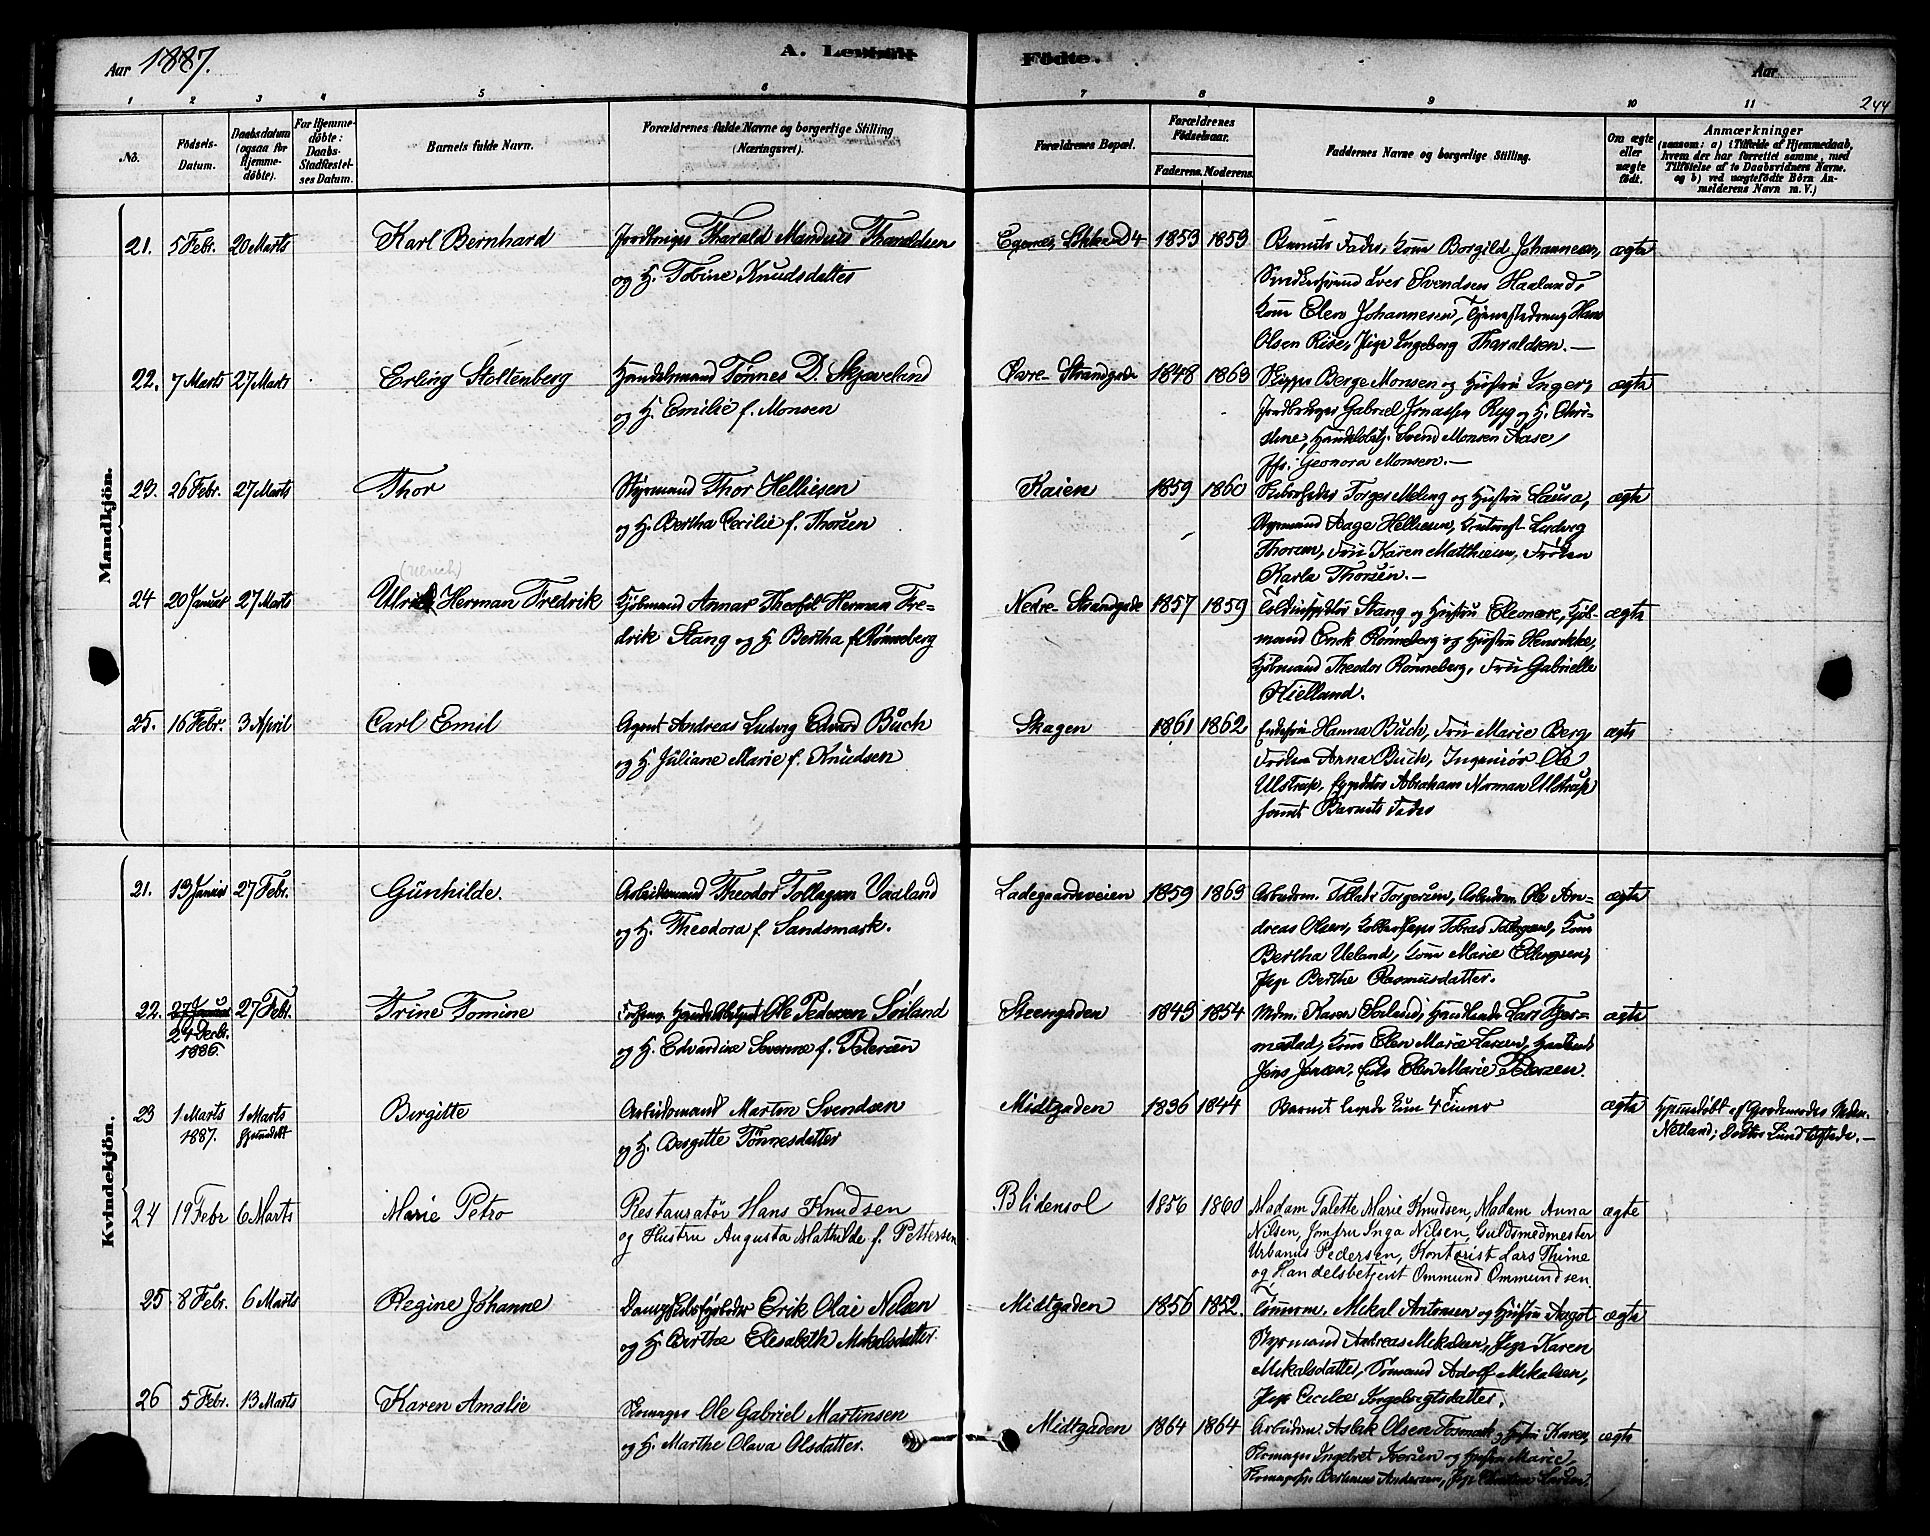 Aar 1887. A. Levende Födte. Aar
244
1 2 3 4 5 6 7 8 9 10 11
No. Födsels-Datum. Daabsdatum (ogsaa for Hjemmedöbte). For Hjemmedöbte: Daabs-Stadfæstelses Datum. Barnets fulde Navn. Forældrenes fulde Navne og borgerlige Stilling (Næringsvei). Forældrenes Bopæl. Forældrenes Födselsaar. Faderens. Moderens. Faddernes Navne og borgerlige Stilling. Om ægte eller uægte födt. Anmærkninger (saasom: a) i Tilfælde af Hjemmedaab, hvem der har forrettet samme, med Tilföielse af to Daabsvidners Navne. og b) ved uægtefödte Börn Anmelderens Navn m. V.)
Mandkjön.
21. 5 Febr. 20 Marts Karl Bernhard Jordbruger Tharald Mandius Tharaldsen Egenæs, Løkke D4 1853 1859 Barnets Fader, Kone Borgild Johannesen, ægte
og H. Tobine Knudsdatter Iver Svendsen Haaland,
Kone Elen Johannesen, Hans
Olsen Riise, Pige Ingeborg Tharaldsen.—
22. 7 Marts 27 Marts Erling Stoltenberg Handelsmand Tønnes D. Skjæveland Øvre Strandgade 1848 1863 Skipper Berge Monsen og Hustru Inger, ægte
og H. Emilie f. Monsen Jordbruger Gabriel Jonassen Ryg og H. Chri-
stine, Handelsbtj. Svend Monsen Aase,
Jfr. Geonora Monsen.—
23. 26 Febr. 27 Marts Thor Styrmand Thor Helliesen Kaien 1859 1860 Skibsreder Torger Meling og Hustru Laura, ægte
og H. Bertha Cecilie f. Thorsen Styrmand Aage Helliesen, Ludvig
Thorsen, Fru Karen Matthiesen, Frøken
Karla Thorsen.—
(Ulrich)
24 20 Januar 27 Marts Ulrik Herman Fredrik Kjöbmand Annar Theofil Herman Fre- Nedre Strandgade 1857 1859 Toldinspektör Stang og Hustru Eleonore, Kjöb- ægte
drik Stang og H. Bertha f. Rønneberg mand Enok Rønneberg og Hustru Henrikke,
Kjöbmand Theodor Rønneberg, Fru Gabrielle
Kielland.
25. 16 Febr. 3 April Carl Emil Agent Andreas Ludvig Edvard Buch Skagen 1861 1862 Enkefru Hanna Buch, Fru Marie Berg, ægte
og H. Juliane Marie f. Knudsen Frøken Anna Buch, Ingeniør Ole
Ulstrup, Expeditør Abraham Norman Ulstrup
samt Barnets Fader
Kvindekjön.
21. 13 Januar 27 Febr. Gunhilde. Arbeidsmand Theodor Tollagsen Vaaland Ladegaardsveien 1859 1863 Arbeidsm. Tollak Torgersen, Arbeidsm. Ole An- ægte
og H. Theodora f. Sandsmark. dreas Olsen, Tobias Tollagsen, Kone
Bertha Ueland, Kone Marie Ellingsen,
Pige Berthe Rasmusdatter.
22. 27 Januar 27 Febr. Trine Tomine Ole Pedersen Soiland Steengaden 1849 1854 Mdm. Karen Soiland, Handlende Lars Tjer- ægte
24 Decbr.
1886. og H. Edvardine Severine f. Petersen mestad, Kone Elen Marie Larsen,
Jens Jensen, Enke Elen Marie Petersen.
23 1 Marts 1 Marts Birgitte Arbeidsmand Morten Svendsen Midtgaden 1836 1844 Barnet levede kun 4 Timer ægte Hjemmedöbt af Gjordemoder Madm.
1887. Hjemmedöbt og H. Bergitte Tönnesdatter Netland; Doktor Lund tilstede.—
24 19 Febr 6 Marts Marie Petra Restauratør Hans Knudsen Blidensol 1856 1860 Madam Talette Marie Knudsen, Madam Anna ægte
og Hustru Augusta Mathilde f. Pettersen Nilsen, Jomfru Inga Nilsen, Guldsmedmester
Urbanus Pedersen, Kontorist Lars Thime
og Handelsbetjent Ommund Ommundsen
25 8 Febr. 6 Marts Regine Johanne Dampskibsfyrböder Erik Olai Nelsen Midtgaden 1856 1852. Tömmerm. Mikal Antonsen og Hustru Aagot ægte
og H. Berthe Elisabeth Mikalsdatter. Styrmand Andreas Mikalsen, Pige Karen
Mikalsdatter, Sømand Adolf Mikalsen,
Pige Cecilie Ingebrigtsdatter.
26 5 Febr. 13 Marts Karen Amalie Skomager Ole Gabriel Martinsen Midtgaden 1864 1864 Arbeidsm. Aslak Olsen Fosmark og Hustru Karen, ægte
og H. Marthe Olava Olsdatter. Skomager Ingebret Iversen og Hustru Marie,
Bertinius Andersen, Pige Larsen.